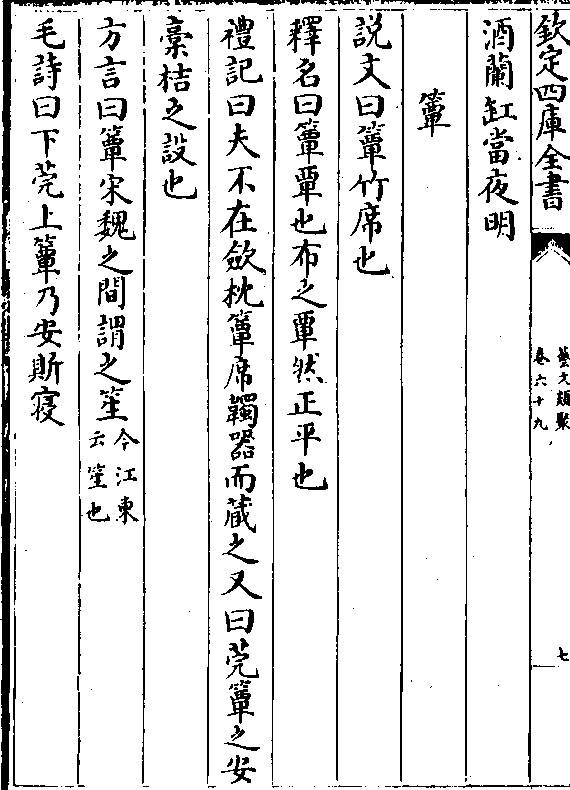 欽定四庫全書
藝文類聚
卷六十九
七
酒蘭缸當夜明
簟
説文曰簟竹席也
釋名曰簟覃也布之覃然正平也
禮記曰夫不在斂枕簟席韣器而藏之又曰莞簟之安
藁桔之設也
方言曰簟宋魏之間謂之笙今江東
云笙也
毛詩曰下莞上簟乃安斯寢